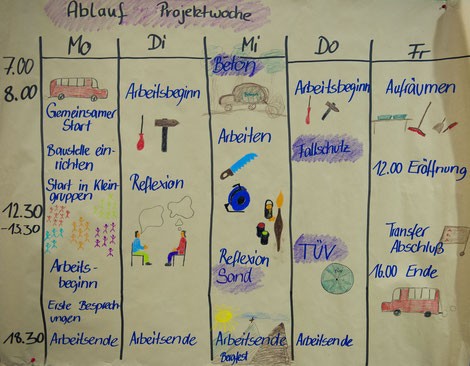 Ablauf Projektwoche
Mo
Di
Mi
Do
Fr
7.00
8.00
12.30
-13.30
18.30
Gemeinsamer
Start
Baustelle ein-
richten
Start in Klein-
gruppen
Arbeits-
beginn
Erste Besprech-
ungen
Arbeitsende
Arbeitsbeginn
Reflexion
Arbeitsende
Beton
Arbeiten
Reflexion
Sand
Arbeitsende
Bergfest
Arbeitsbeginn
Fallschutz
TÜV
Arbeitsende
Aufräumen
12.00 Eröffnung
Transfer
Abschluß
16.00 Ende